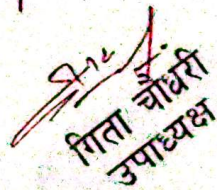 गिता चौधरी
उपाध्यक्ष